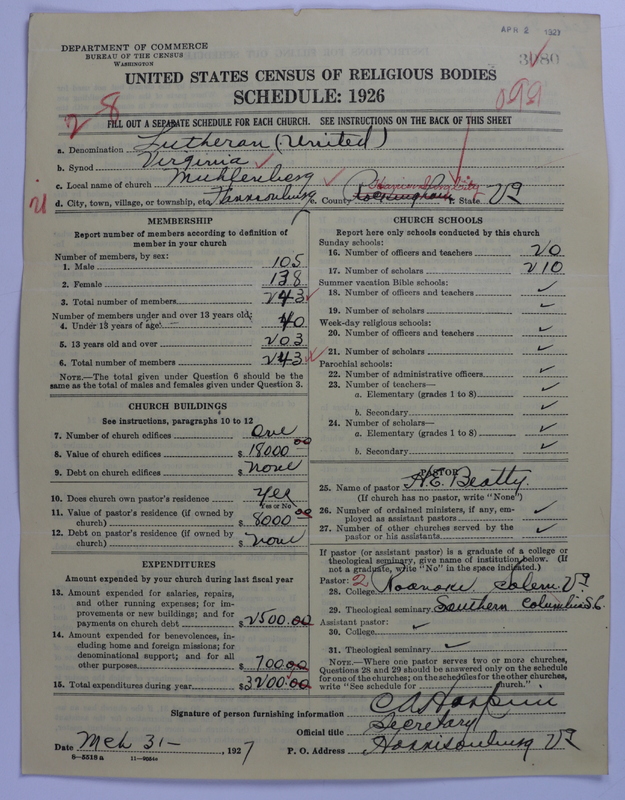 APR 2 1927
DEPARTMENT OF COMMERCE
BUREAU OF THE CENSUS
WASHINGTON
UNITED STATES CENSUS OF RELIGIOUS BODIES
SCHEDULE: 1926
28
099
FILL OUT A SEPARATE SCHEDULE FOR EACH CHURCH. SEE INSTRUCTIONS ON THE BACK OF THIS SHEET
a. Denomination Lutheran (United)
b. Synod Virginia
c. Local name of church Muhlenberg
d. City, town, village, or township, etc. Harrisonburg e. County Rockingham Harrisonburg City f. State Va
MEMBERSHIP
Report number of members according to definition of
member in your church
Number of members, by sex:
1. Male 105
2. Female 138
3. Total number of members 243
Number of members under and over 13 years old:
4. Under 13 years of age 40
5. 13 years old and over 203
6. Total number of members 243
NOTE.—The total given under Question 6 should be the
same as the total of males and females given under Question 3.
CHURCH BUILDINGS
See instructions, paragraphs 10 to 12
7. Number of church edifices One
8. Value of church edifices $ 18000.00
9. Debt on church edifices $ none
10. Does church own pastor's residence Yes
Yes or No
11. Value of pastor's residence (if owned by
church) $ 8000.00
12. Debt on pastor's residence (if owned by
church) $ none
EXPENDITURES
Amount expended by your church during last fiscal year
13. Amount expended for salaries, repairs,
and other running expenses; for im-
provements or new buildings; and for
payments on church debt $ 2500.00
14. Amount expended for benevolences, in-
cluding home and foreign missions; for
denominational support; and for all
other purposes $ 700.00
15. Total expenditures during year $ 3200.00
CHURCH SCHOOLS
Report here only schools conducted by this church
Sunday schools:
16. Number of officers and teachers 20
17. Number of scholars 210
Summer vacation Bible schools:
18. Number of officers and teachers ✓
19. Number of scholars ✓
Week-day religious schools:
20. Number of officers and teachers ✓
21. Number of scholars ✓
Parochial schools:
22. Number of administrative officers ✓
23. Number of teachers—
a. Elementary (grades 1 to 8) ✓
b. Secondary ✓
24. Number of scholars—
a. Elementary (grades 1 to 8) ✓
b. Secondary ✓
PASTOR
25. Name of pastor A.E. Beatty
(If church has no pastor, write "None")
26. Number of ordained ministers, if any, em-
ployed as assistant pastors ✓
27. Number of other churches served by the
pastor or his assistants ✓
If pastor (or assistant pastor) is a graduate of a college or
theological seminary, give name of institution below. (If
not a graduate, write "No" in the space indicated.)
Pastor: 2
28. College Roanoke Salem Va
29. Theological seminary Southern Columbia S.C.
Assistant pastor:
30. College ✓
31. Theological seminary ✓
NOTE.—Where one pastor serves two or more churches,
Questions 28 and 29 should be answered only on the schedule
for one of the churches; on the schedules for the other churches,
write "See schedule for church."
Signature of person furnishing information
Official title Secretary
Date Mch 31 - , 1927 P. O. Address Harrisonburg Va
8-5518 a